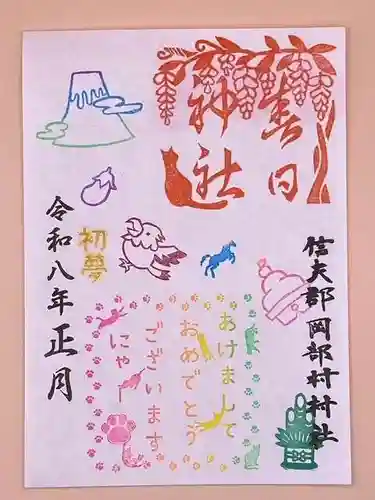 春日
神社
信夫郡岡部村村社
初夢
令和八年正月
あけまして
おめでとう
ございます
にゃー